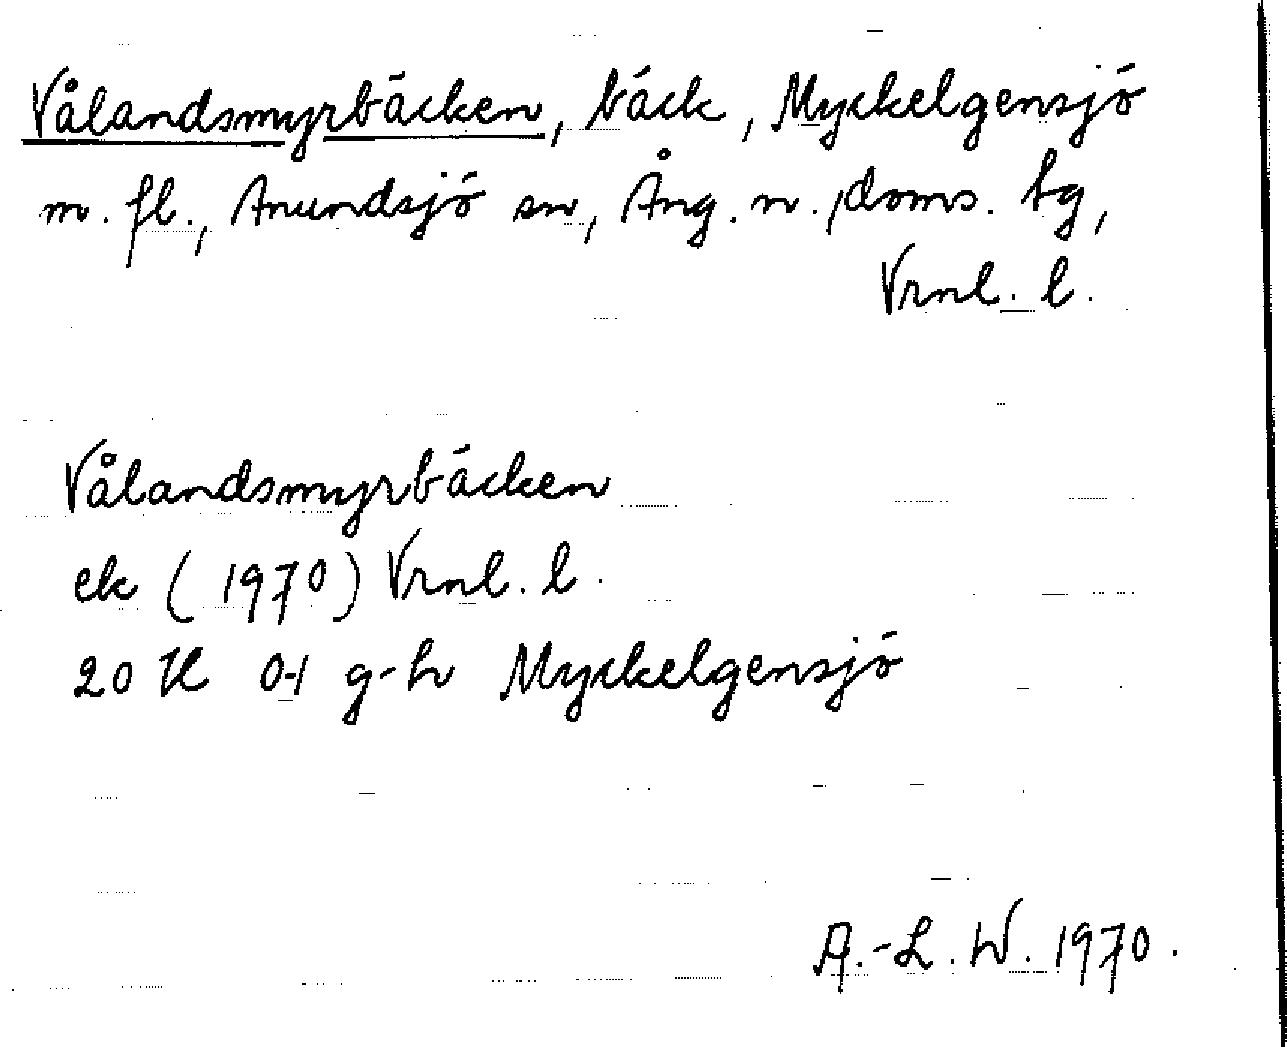 Vålandsmyrbäcken, bäck, Myckelgensjö
m. fl., Anundsjö sn, Ång. n. doms. tg,
Vrnl. l.
Vålandsmyrbäcken
ek (1970) Vrnl. l.
20 H 0-1 g-h Myckelgensjö
A.-L. W. 1970.